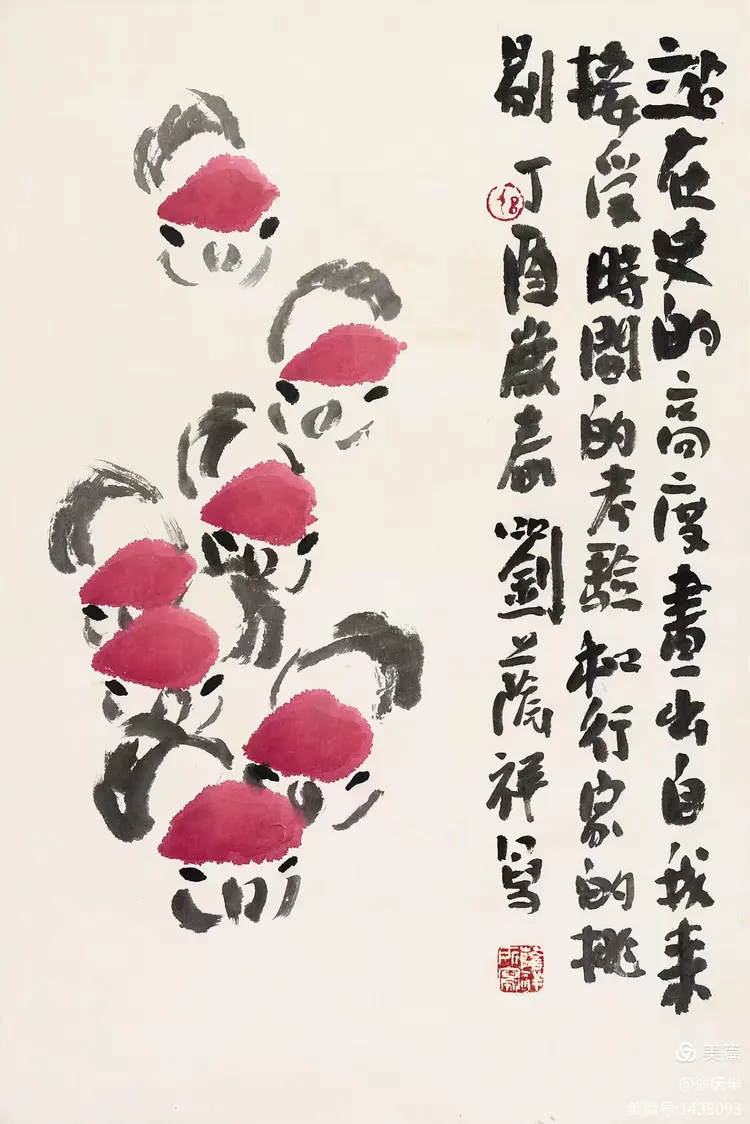 站在史的高度畫出自我来
接受時間的考驗和行家的挑
剔 丁酉歲春 劉蔭祥寫
美篇
@徐庆华
美篇号:1438093